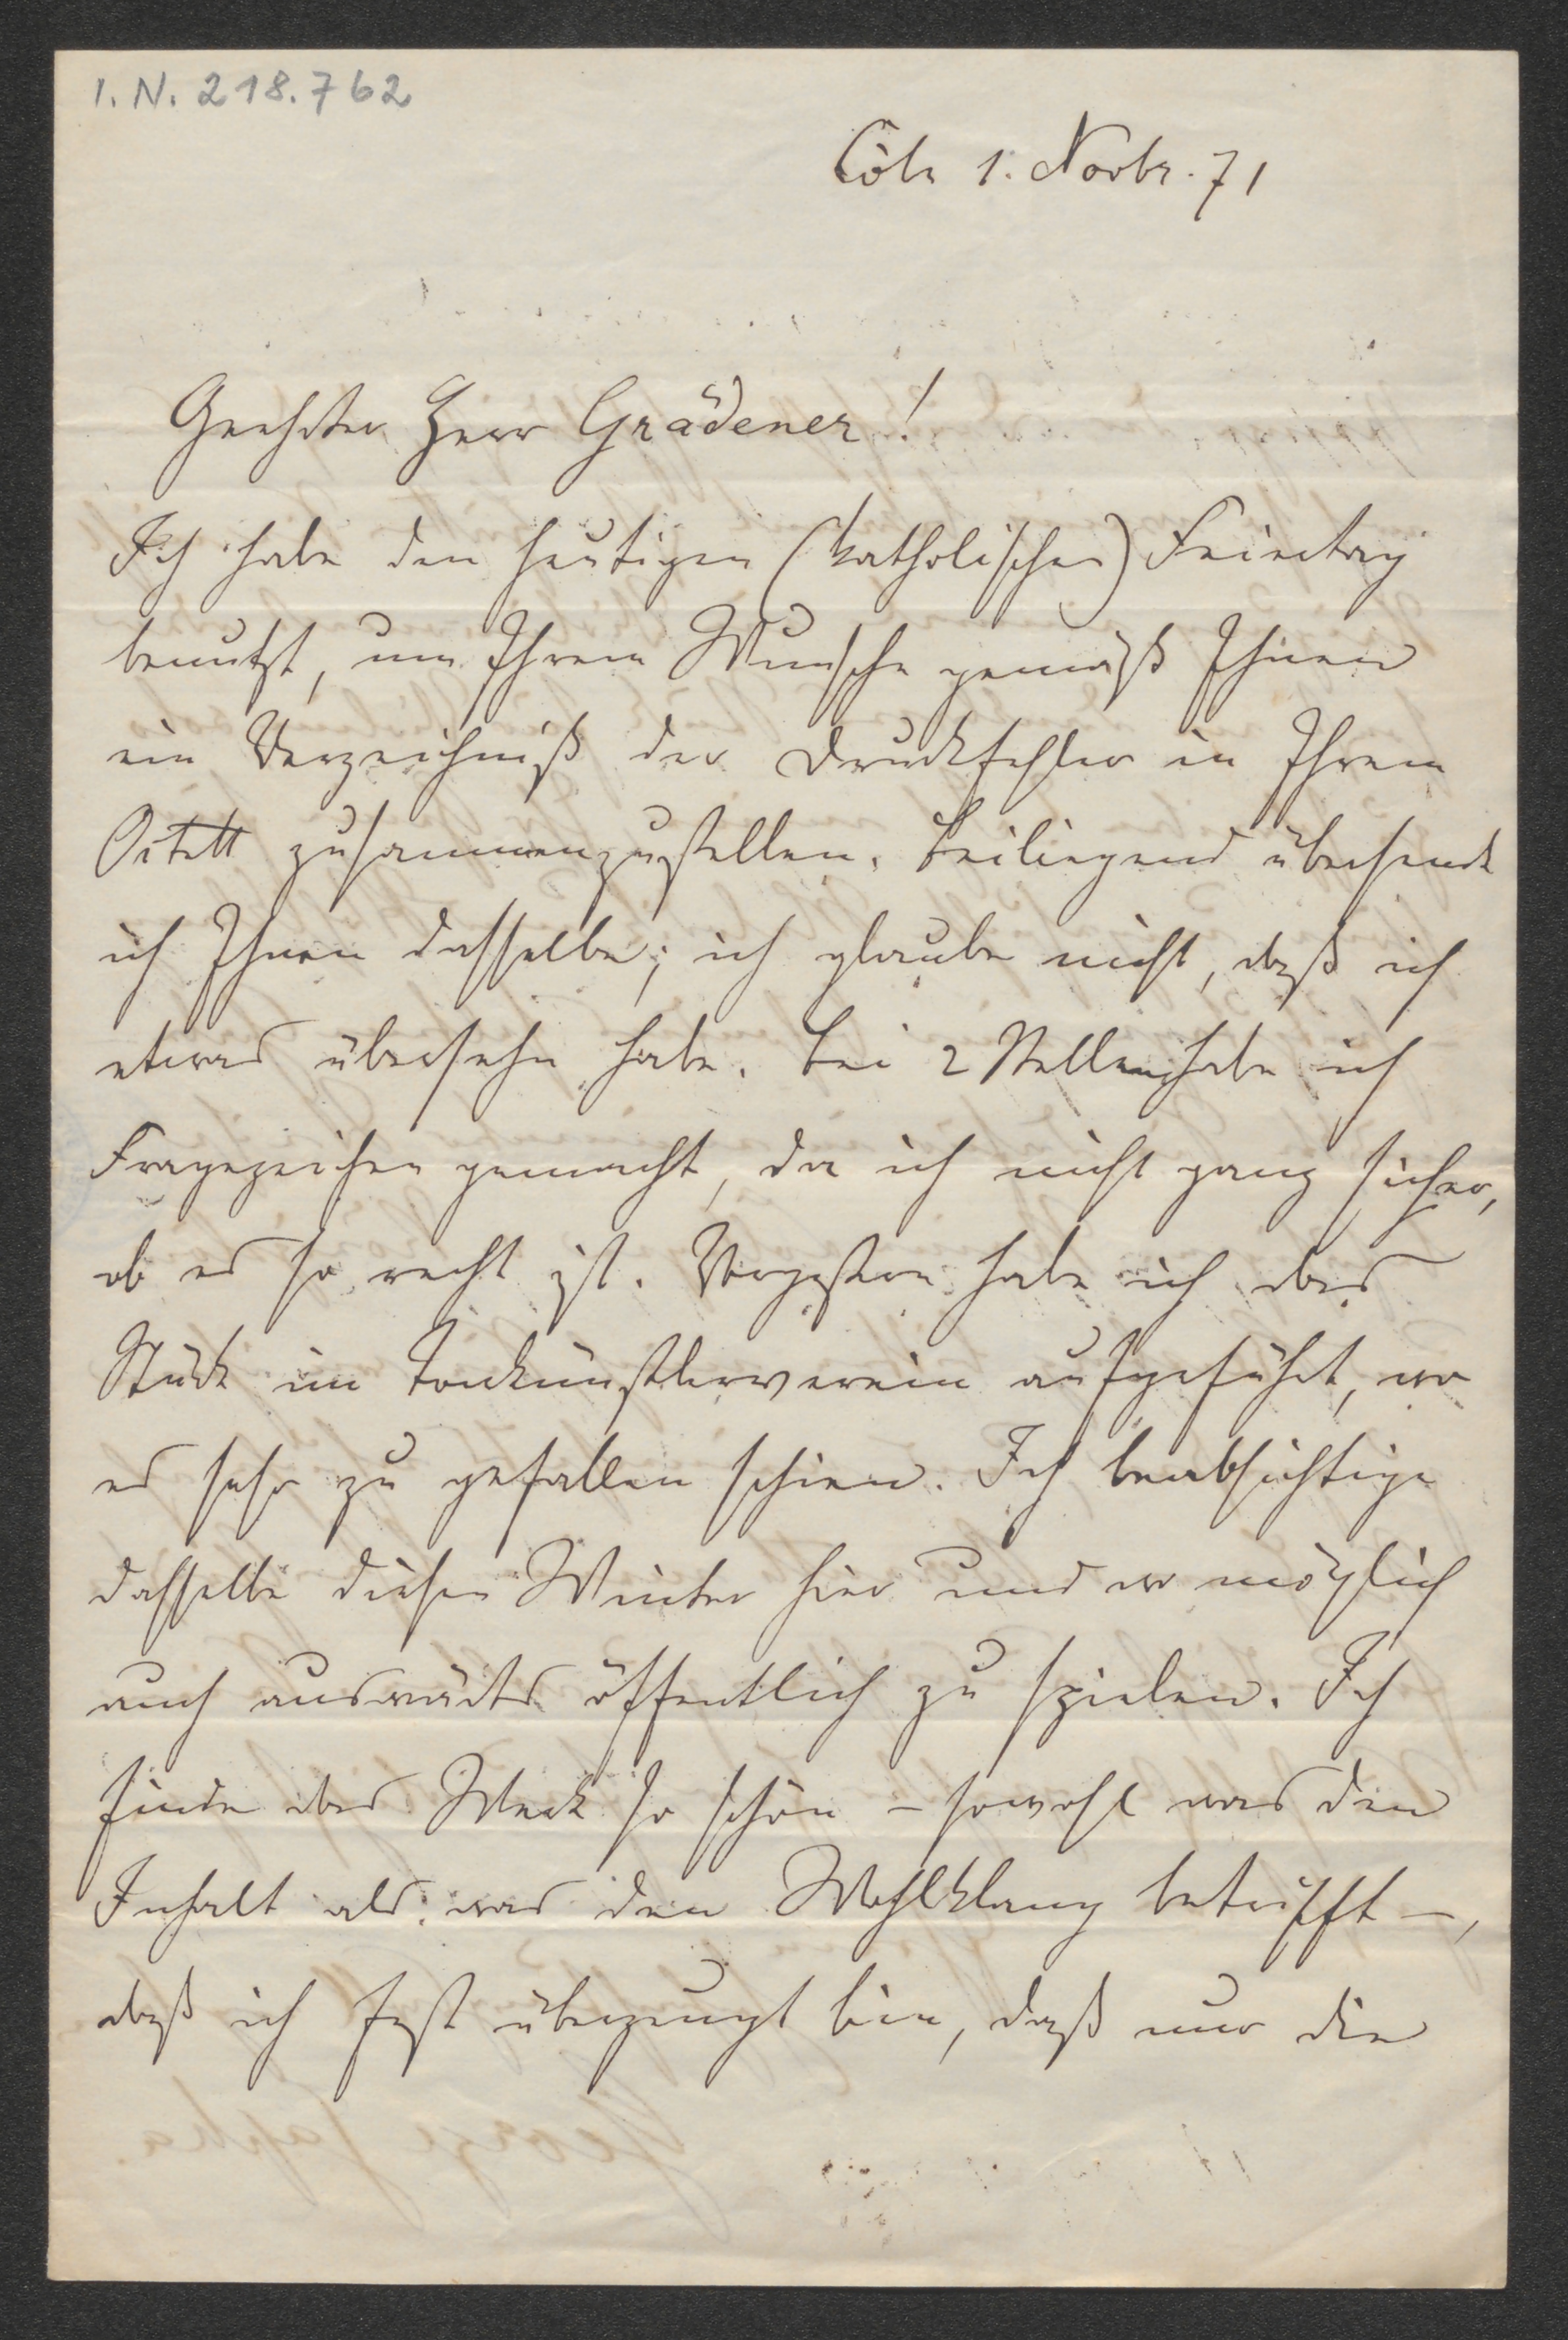 I. N. 218.762
Cöln 1. Novbr. 71
Geehrter Herr Grädener!
Ich habe den heutigen (katholischen) Feiertag
benutzt, um Ihrem Wunsche gemäß Ihnen
ein Verzeichniß der Druckfehler in Ihrem
Octett zusammenzustellen. Beiliegend übersende
ich Ihnen dasselbe; ich glaube nicht, daß ich
etwas übersehn habe. Bei 2 Stellen habe ich
Fragezeichen gemacht, da ich nicht ganz sicher,
ob es so recht ist. Vorgestern habe ich das
Stück im Tonkünstlerverein aufgeführt, wo
es sehr zu gefallen schien. Ich beabsichtige
dasselbe diesen Winter hier und wo möglich
auch auswärts öffentlich zu spielen. Ich
finde das Werk so schön – sowohl was den
Inhalt als was den Wohlklang betrifft –,
daß ich fest überzeugt bin, daß nur die